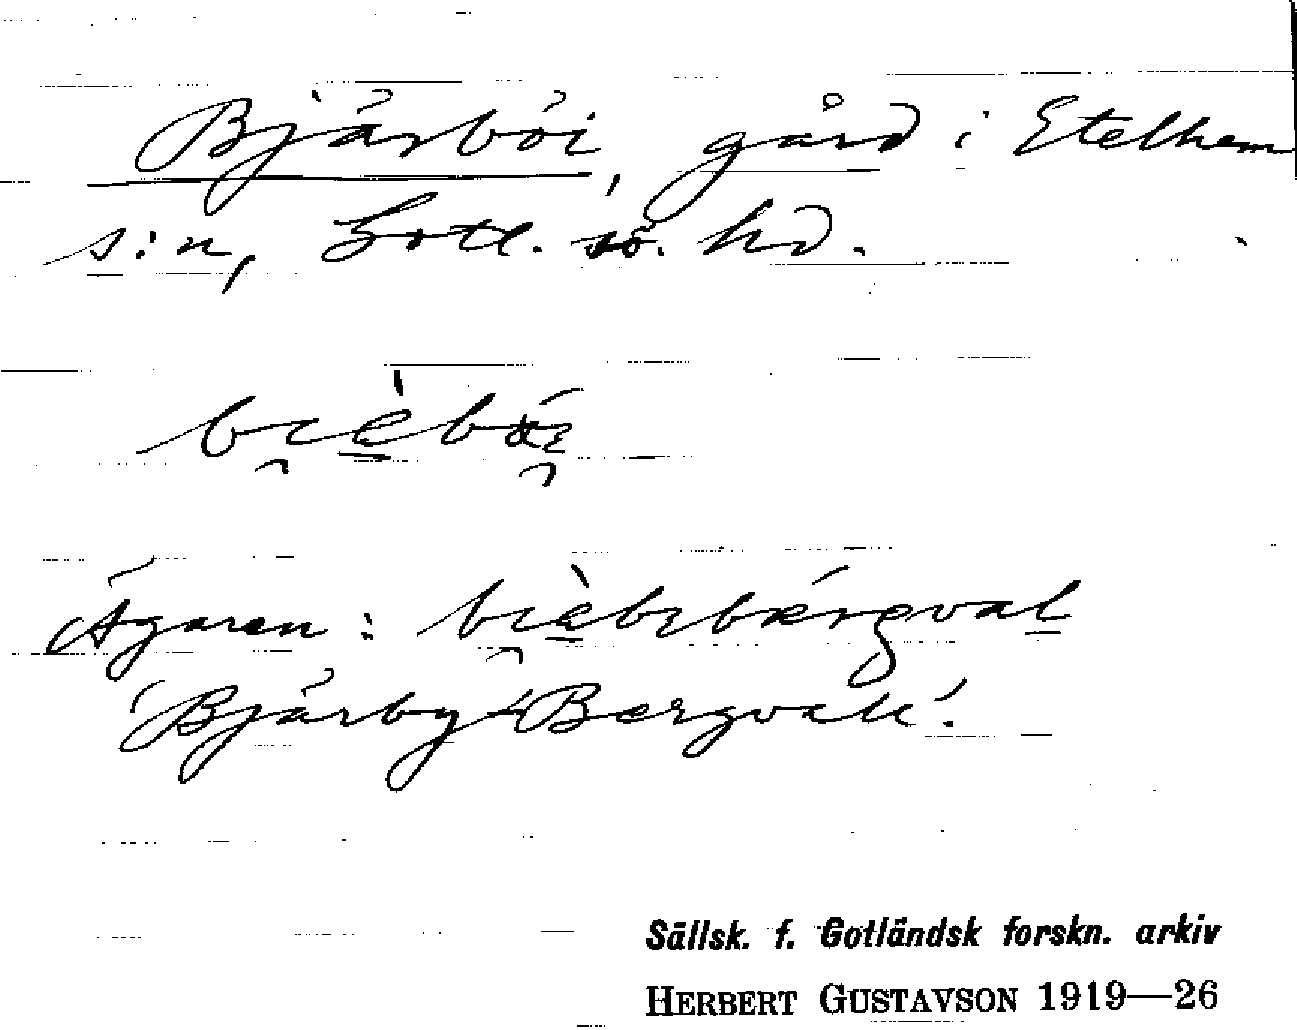 Bjärböi, gård i Etelhem
s:n, Gotl. sö. hd.
Ägaren:
'Bjärby-Bergvall'.
Sällsk. f. Gotländsk forskn. arkiv
HERBERT GUSTAVSON 1919—26